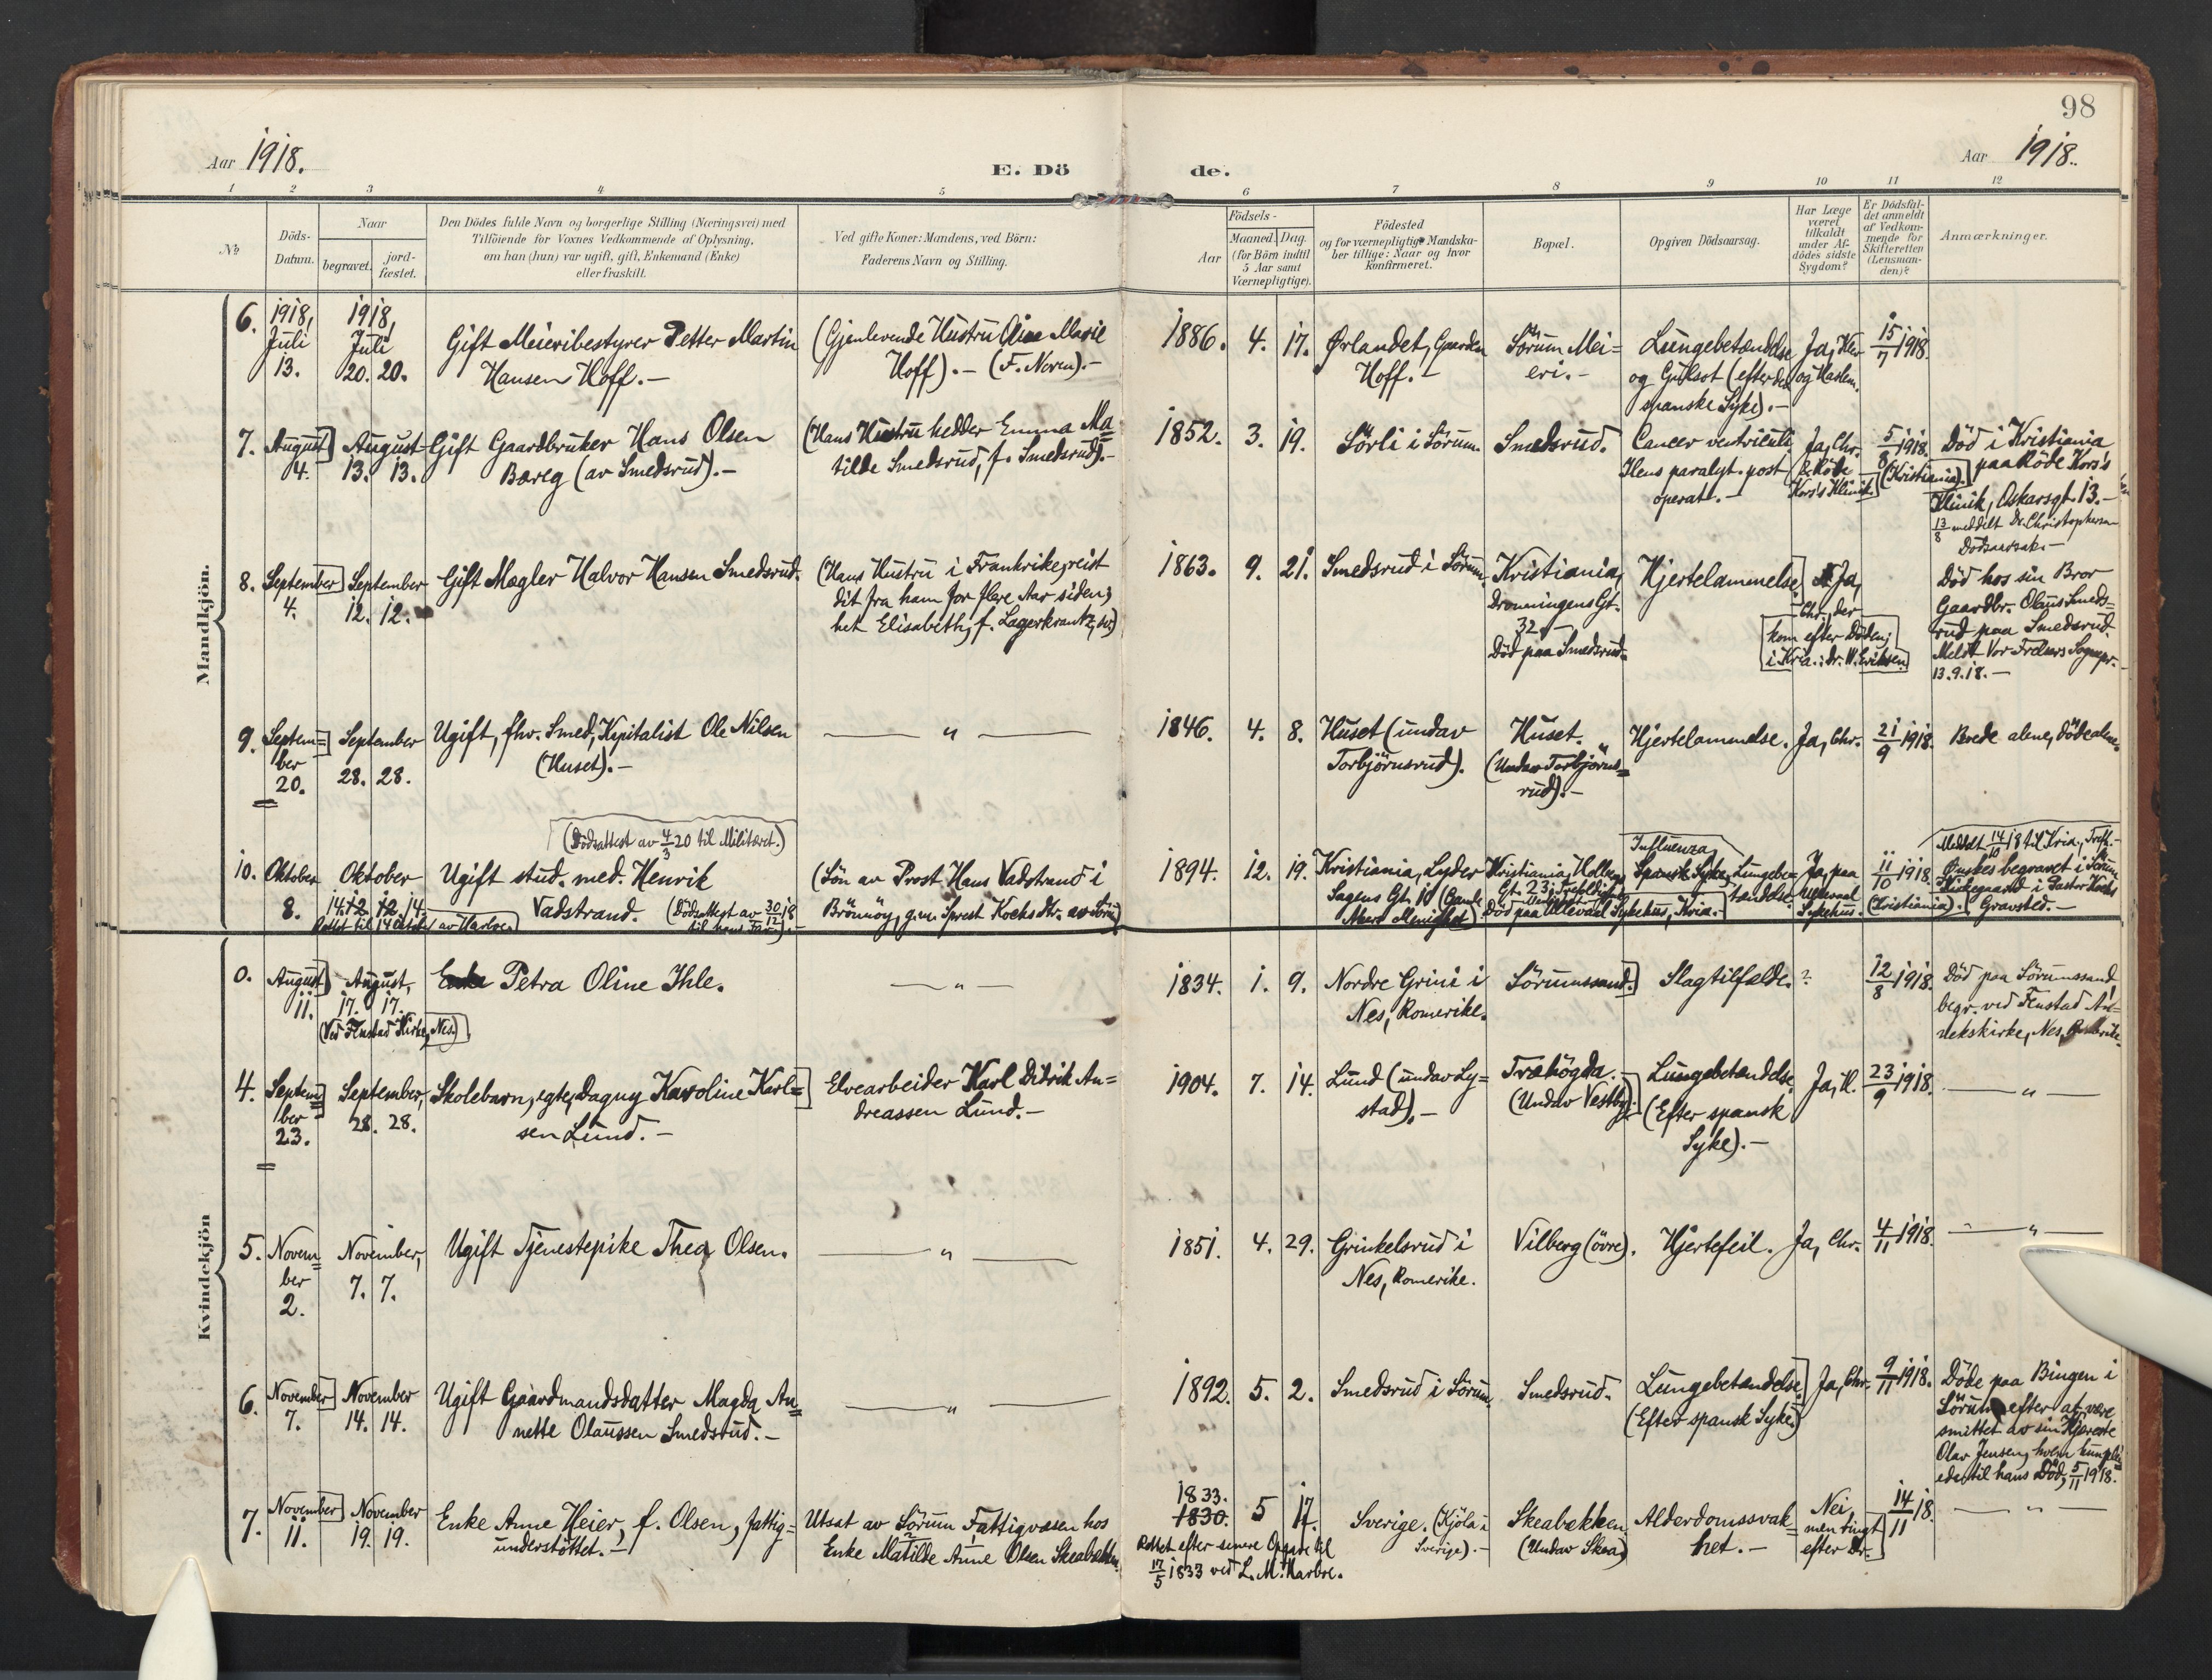 98
Aar 1918.
E. Dö
de.
Aar 1918.
1 2 3 4 5 6 7 8 9 10 11 12
No
Döds-
Datum.
Naar
begravet.
jord-
fæstet.
Den Dödes fulde Navn og borgerlige Stilling (Næringsvei) med
Tilföiende for Voxnes Vedkommende af Oplysning,
om han (hun) var ugift, gift, Enkemand (Enke)
eller fraskilt.
Ved gifte Koner: Mandens, ved Börn:
Faderens Navn og Stilling.
Födsels-
Aar
Maaned.
Dag.
(for Börn indtil
5 Aar samt
Værnepligtige).
Födested
og for værnepligtige Mandska-
ber tillige: Naar og hvor
konfirmeret.
Bopæl.
Opgiven Dödsaarsag.
Har Læge
været
tilkaldt
under Af-
dödes sidste
Sygdom?
Er Dödsfal-
det anmeldt
af Vedkom-
mende for
Skifteretten
(Lensman-
den)?
Anmærkninger.
Mandkjön.
6.
1918,
Juli
13.
1918,
Juli
20. 20.
Gift Meieribestyrer Petter Martin
Hansen Hoff.-
(Gjenlevende Hustru Oline Marie
Hoff).- (F. Noren).-
1886. 4. 17.
Ørlandet, Gaarden
Hoff.-
Sörum Mei=
eri.-
Lungebetændelse
og Gulsot (efter den
spanske Syke).-
Ja, Chr
og Haslem.
15/7 1918.
7.
August
4.
August
13. 13.
Gift Gaardbruker Hans Olsen
Bareg (av Smedsrud).-
(Hans Hustru hedder Emma Ma=
tilde Smedsrud, f. Smedsrud).-
1852. 3. 19.
Sörli i Sörum.
Smedsrud.
Cancer ventriculi
Ileus paralyt. post
operat.-
Ja, Chr.
& Röde
Kors's Klinik.
5/8 1918.
(Kristiania).
Död i Kristiania
paa Röde Kors's
Klinik, Oskarsgt. 13.-
13/8 meddelt Dr. Christophersen
Dödsaarsak.-
8.
September
4.
September
12. 12.
Gift Mægler Halvor Hansen Smedsrud.
(Hans Hustru i Frankrike, reist
dit fra ham for flere Aar siden,
het Elisabeth, f. Lagerkrantz, sv.)
1863. 9. 21.
Smedsrud i Sörum.
Kristiania,
Dronningens Gt.
32.-
Död paa Smedsrud.
Hjertelammelse.
Ja,
Chr, der
kom efter Döden;
i Kra.: Dr. W. Eriksen.
Död hos sin Bror
Gaardbr. Olaus Smeds=
rud paa Smedsrud.
Meldt Vor Frelsers Sognepr.
13.9.18.-
9.
Septem=
ber
20.
September
28. 28.
Ugift, fhv. Smed, Kapitalist Ole Nilsen
(Huset).-
— " —
1846. 4. 8.
Huset (undav
Torbjörnsrud).
Huset.
(Undav Torbjörns=
rud).-
Hjertelammelse.
Ja, Chr.
21/9 1918.
Boede alene, döde alene.
(Dödsattest av 4/3 20 til Militæret.)
10.
Oktober
8.
Oktober
14. 12 12 14
Rettet til 14 Oktober av Harboe.
Ugift stud. med. Henrik
Vadstrand. (Dödsattest av 30/12 18
til hans Far).-
(Sön av Prost Hans Vadstrand i
Brönnöy, g.m. Sprest Kochs Dtr. av Sörum)
1894. 12. 19.
Kristiania, Lyder
Sagens Gt. 10 (Gamle
Akers Menighet)
Kristiania,
Gt. 23, Trefoldigh.
Död paa Ullevaal Sykehus, Kria.
Influenza,
Spansk Syke, Lungebe=
tændelse.
Ja, paa
Ullevaal
Sykehus.
11/10 1918.
(Kristiania).
Meddelt 14/10 18 til Kria, Trefk.-
Ønskes begravet i Sörum
Kirkegaard i Pastor Kochs
Gravsted.-
Kvindekjön
0.
August
11.
August,
17. 17.
(Ved Fenstad Kirke, Nes.)
Enke Petra Oline Ihle.
— " —
1834. 1. 9.
Nordre Grini i
Nes, Romerike.
Sörumssand.
Slagtilfælde.
?
12/8 1918.
Död paa Sörumssand,
begr. ved Fenstad An=
nekskirke, Nes, Romerike.
4.
Septem=
ber
23.
September,
28. 28.
Skolebarn, egte, Dagny Karoline Karl=
sen Lund.-
Elvearbeider Karl Didrik An=
dreassen Lund.-
1904. 7. 14.
Lund (undav Ly=
stad).-
Træhögda.-
(Undav Vestby).
Lungebetændelse
(Efter spansk
Syke).-
Ja, H.
23/9 1918.
— " —
5.
Novem=
ber
2.
November,
7. 7.
Ugift Tjenestepike Thea Olsen.
— " —
1851. 4. 29.
Grinkelsrud i
Nes, Romerike.
Vilberg (övre).
Hjertefeil.
Ja, Chr.
4/11 1918.
— " —
6.
November
7.
November
14. 14.
Ugift Gaardmandsdatter Magda An=
nette Olaussen Smedsrud.-
— " —
1892. 5. 2.
Smedsrud i Sörum.
Smedsrud.
Lungebetændelse
(Efter spansk Syke)
Ja, Chr.
9/11 1918.
Döde paa Bingen i
Sörum efter at være
smittet av sin Kjæreste
Olav Jensen, hvem hun plei=
edes til hans Död, 5/11 1918.
7.
November
11.
November
19. 19.
Enke Anne Heier, f. Olsen, fattig=
understöttet.-
Utsat av Sörum Fattigvæsen hos
Enke Matilde Anne Olsen Skeabækken.
1833.
1830. 5 17.
Rettet efter senere Opgave til
17/5 1833 ved L. M. Harboe.
Sverige. (Kjöla i
Sverige).-
Skeabækken.
(Undav Skea)
Alderdomssvak=
het.-
Nei,
men bragt
efter Dr.
14/11 18.
— " —